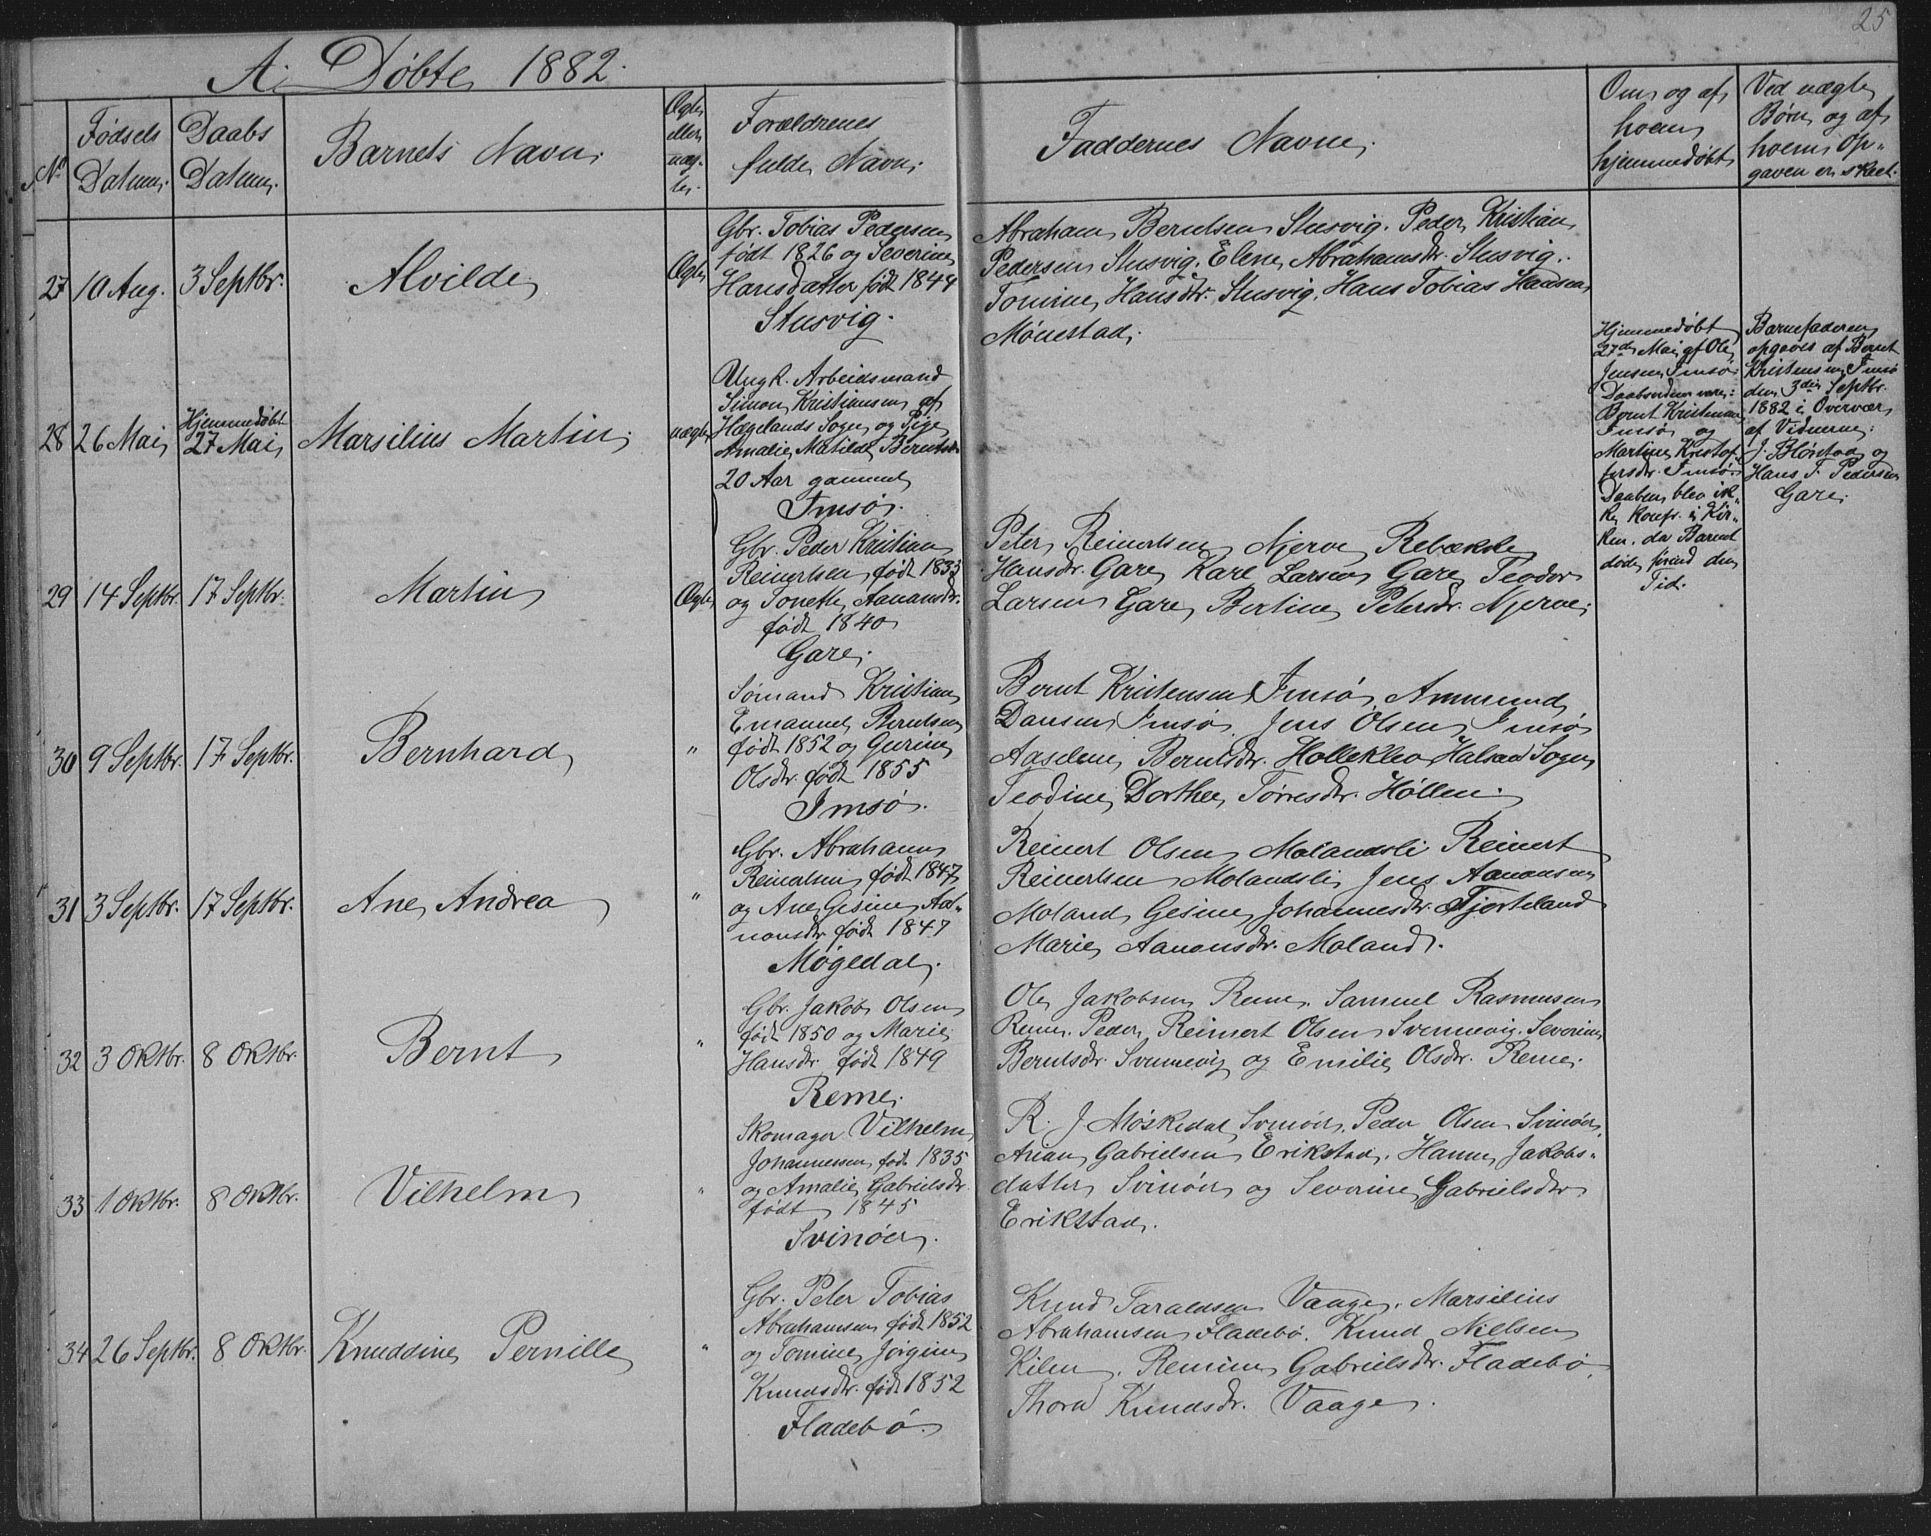 25
A. Døbte 1882.
No
Fødsels
Datum.
Daabs
Datum.
Barnets Navn.
Ægte
eller
uæg-
te.
Forældrenes
fulde Navn.
Faddernes Navne.
Om og af
hvem
hjemmedøbt
Ved uægte
Børn og af
hvem Op-
gaven er skeet.
27 10 Aug. 3 Septbr. Alvilde Ægte
Gbr. Tobias Pedersen
født 1826 og Severine
Hansdatter født 1844
Stusvig.
Abraham Berntsen Stusvig. Peder Kristian
Pedersen Stusvig. Elene Abrahamsdr. Stusvig.
Tomine Hansdtr. Stusvig. Hans Tobias Hansen
Mönestad.
28 26 Mai Hjemmedøbt
27 Mai Marsilius Martin uægte
Ungk. Arbeidsmand
Simon Kristiansen af
Hægelands Sogn og Pige
Amalie Matilde Berntsdr.
20 Aar gammel
Imsø.
Hjemmedøbt
27de Mai af Ole
Jensen Imsø
Daabsvidner vare:
Bernt Kristensen
Imsø og
Martine Kristof-
fersdr. Imsø.
Daaben blev ik-
ke konfr. i Kir-
ken, da Barnet
døde forud den
Tid.
Barnefaderen
opgaves af Bernt
Kristensen Imsø
den 3die Septbr.
1882 i Overvær
af Vidnerne:
J. Blörstad og
Hans T. Pedersen
Gare.
29 14 Septbr. 17 Septbr. Martin Ægte
Gbr. Peder Kristian
Reinertsen født 1833
og Tonette Aanonsdr.
født 1840
Gare.
Peter Reinertsen Njerve Rebække
Hansdr. Gare Karl Larsen Gare Teodor
Larsen Gare, Bertine Petersdr. Njerve.
30 9 Septbr. 17 Septbr. Bernhard "
Sømand Kristian
Emanuel Berntsen
født 1852 og Gurine
Olsdr. født 1855
Imsø.
Bernt Kristensen Imsø, Ammund
Dansen Imsø Jens Olsen Imsø
Aaselene Berntsdr. Hollekleo Halsaa Sogn
Teodine Dorthea Tørresdr. Höllen.
31 3 Septbr. 17 Septbr. Ane Andrea "
Gbr. Abraham
Reinertsen født 1847
og Ane Gesine Aa-
nonsdr. født 1847
Møgedal.
Reinert Olsen Molandsli Reinert
Reinertsen Molandsli Jens Aanonsen
Moland, Gesine Johannesdr. Fjorteland
Marie Aanonsdr. Moland.
32 3 Oktbr. 8 Oktbr. Bernt "
Gbr. Jakob Olsen
født 1850 og Marie
Hansdr. født 1849
Reme.
Ole Jakobsen Reme. Samuel Rasmusen
Reme. Peder Reinert Olsen Svennevig. Severine
Berntsdr. Svennevig og Emilie Olsdr. Reme.
33 1 Oktbr. 8 Oktbr. Vilhelm "
Skomager Vilhelm
Johannessen født 1835
og Amalie Gabrielsdr.
født 1845
Svinöer.
R. J. Møskedal Svinöer. Peder Olsen Svinöer.
Arian Gabrielsen Erikstad. Hanne Jakobs-
datter Svinöer og Severine Gabrielsdtr
Erikstad.
34 26 Septbr. 8 Oktbr. Knuddine Pernille "
Gbr. Peter Tobias
Abrahamsen født 1852
og Tomine Jörgine
Knudsdr. født 1852
Fladebø.
Knud Taraldsen Vaage. Marsilius
Abrahamsen Fladebø. Knud Nielsen
Kilen. Remine Gabrielsdr. Fladebø
Thora Knudsdr. Vaage.